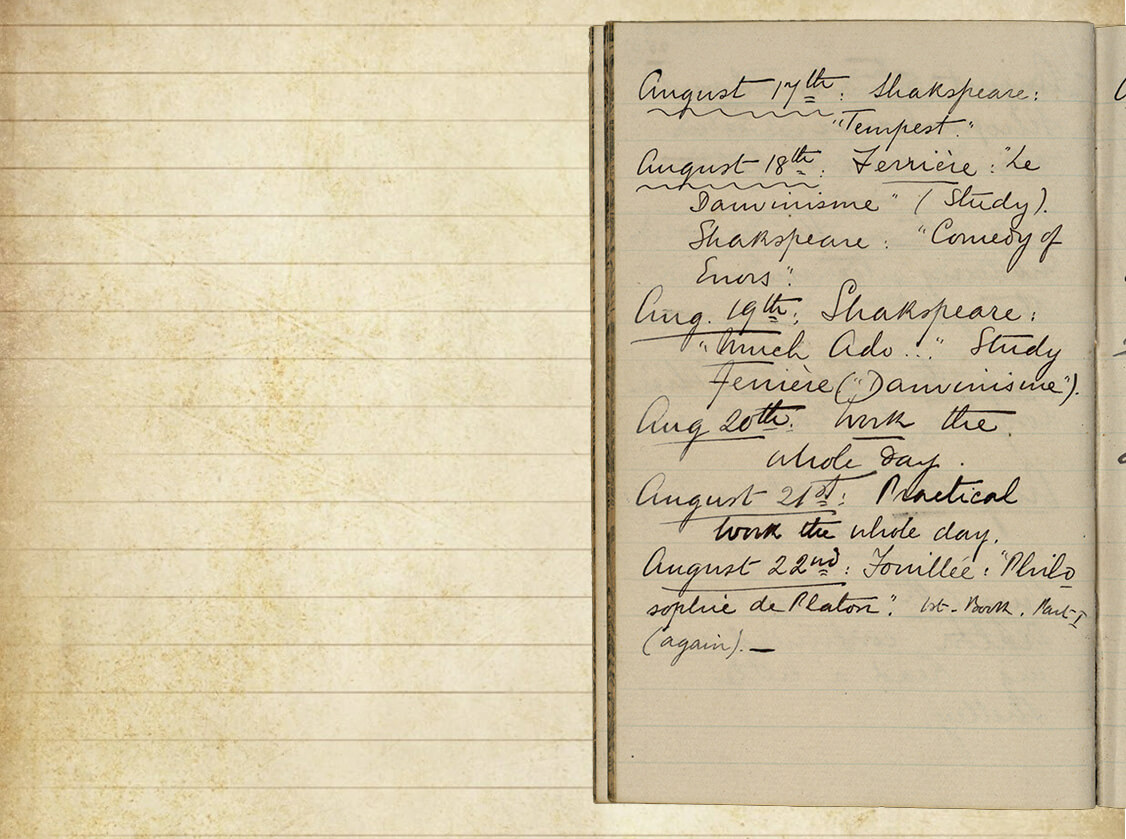 August 17th: Shakspeare:
"Tempest."
August 18th: Ferrière: "Le
Darwinisme" (Study).
Shakspeare: "Comedy of
Errors".
Aug. 19th: Shakspeare:
"Much Ado..." Study
Ferrière ("Darwinisme").
Aug 20th: Work the
whole day.
August 21st: Practical
work the whole day.
August 22nd: Fouillée: "Philo
sophie de Platon". 1st- Book. Part I
(again). —